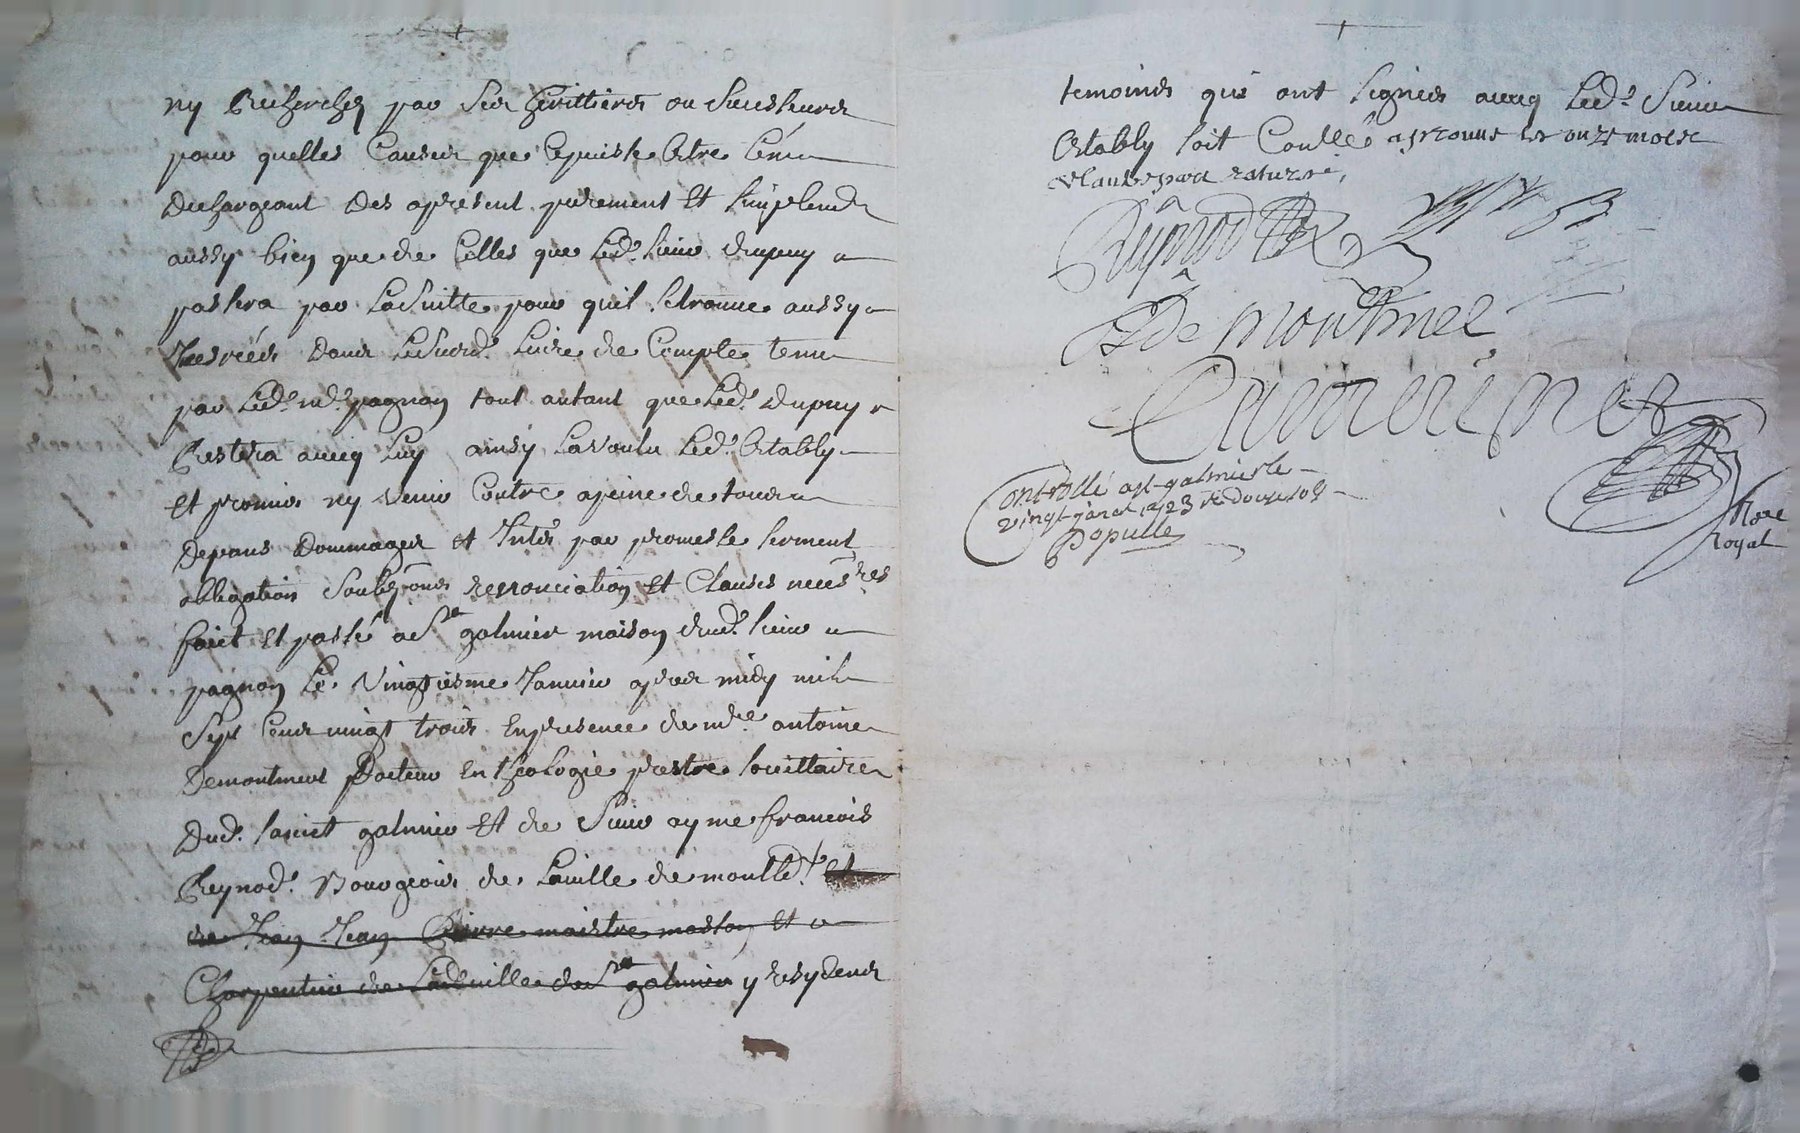 ny Recherchez par Ses herittiers ou Successeurs
pour quelles Causes que Cepuisse Estre Len
Dechargeant Des apresent purement Et Simplemt
aussy bien que de Celles que Led. Sieur dupuy
passera par La Suitte pour quil Setrouve aussy
Inserées Dans Le Susd. Livre de Compte tenu
par Led. sr. pagnon tout autant que Led. dupuy
Restera avecq Luy ainsy La Voulu Led. Estably
Et promis ny venir Contre apeine de tous
Depans Dommages et Intts par promesse Serment
obligation Soubzons renonciation Et Clauses necesres
fait Et passé a St galmier maison dud. Sieur
pagnon Le Vingtiesme Janvier apres midy mil
Sept Cens vingt trois En presence de mre antoine
Demontmet Docteur En theologie prestre Societtaire
Dud. Sainct galmier Et de Sieur ayme francois
Reynod Bourgeois de La ville de
de Jean Jean maistre masson Et
Charpentier de Lad. ville de St galmier y residens
temoins qui ont Signes avecq Led. Sieur
Estably Soit Conllé aprouvé les onze mots
cy
Reynod
De montmet
Controllé a St galmier le
vingt janer 1723 R douze sols
Populle
Nore
Royal